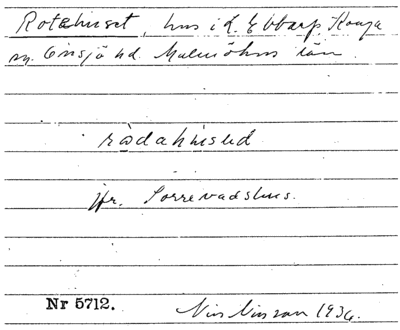 Rotahuset, hus i d. Ebbarp, Konga
sn. Onsjö hd. Malmöhus län.
rod a h u sed
Jfr. Sorrevadshus.
Nr 5712.
Nils Nilsson 1936.